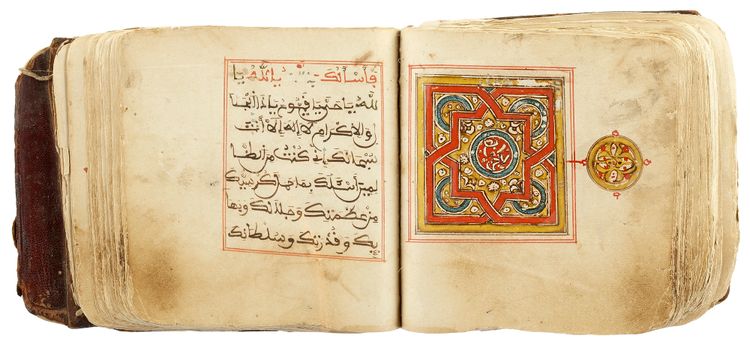 فأسألك يا الله يا
لله يا حي يا قيوم يا ذا الجلا
والاكرام لا إله إلا أنت
سبحانك إني كنت من الظا
لمين أسئلك بما حمل كرسيك
من عظمتك وجلالك وبها
ئك وقدرتك وسلطانك